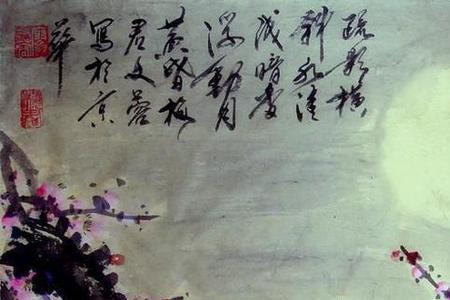 疏影橫
斜水清
淺暗香
浮動月
黃昏梅
君文
寫於京
華